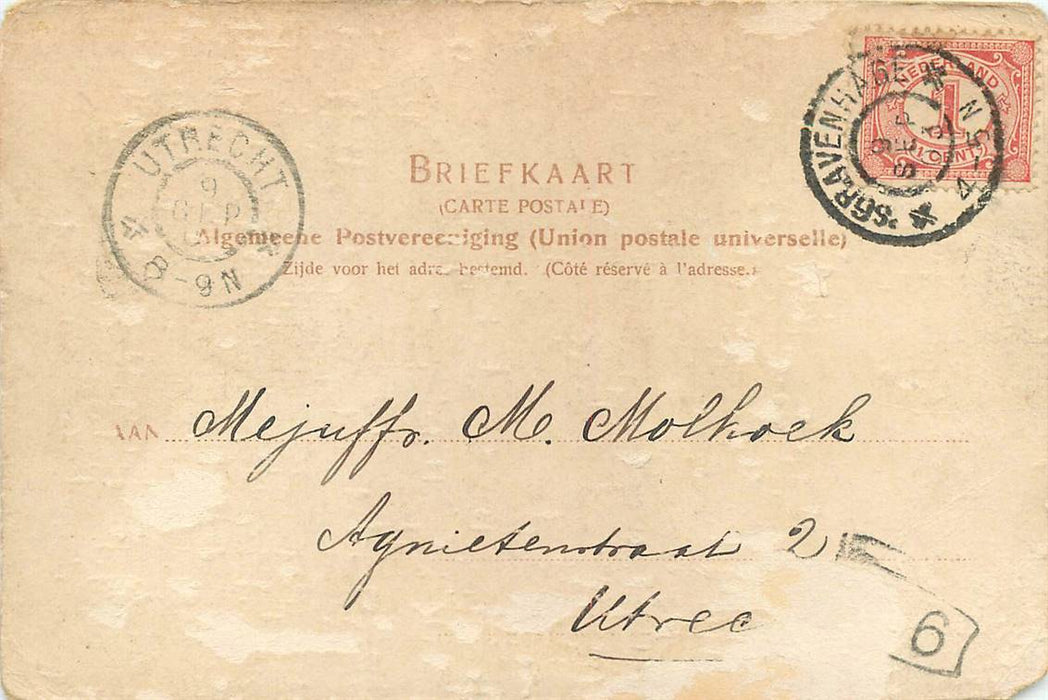 NEDERLAND
1
CENT
'SGRAVENHAGE
9 SEP
4-5N
UTRECHT
9
SEP
8-9N
BRIEFKAART
(CARTE POSTALE)
Algemeene Postvereeniging (Union postale universelle)
Zijde voor het adres bestemd. (Côté réservé à l'adresse.)
AAN Mejuffr. M. Molhoek
Agnietenstraat 2
Utrec
6